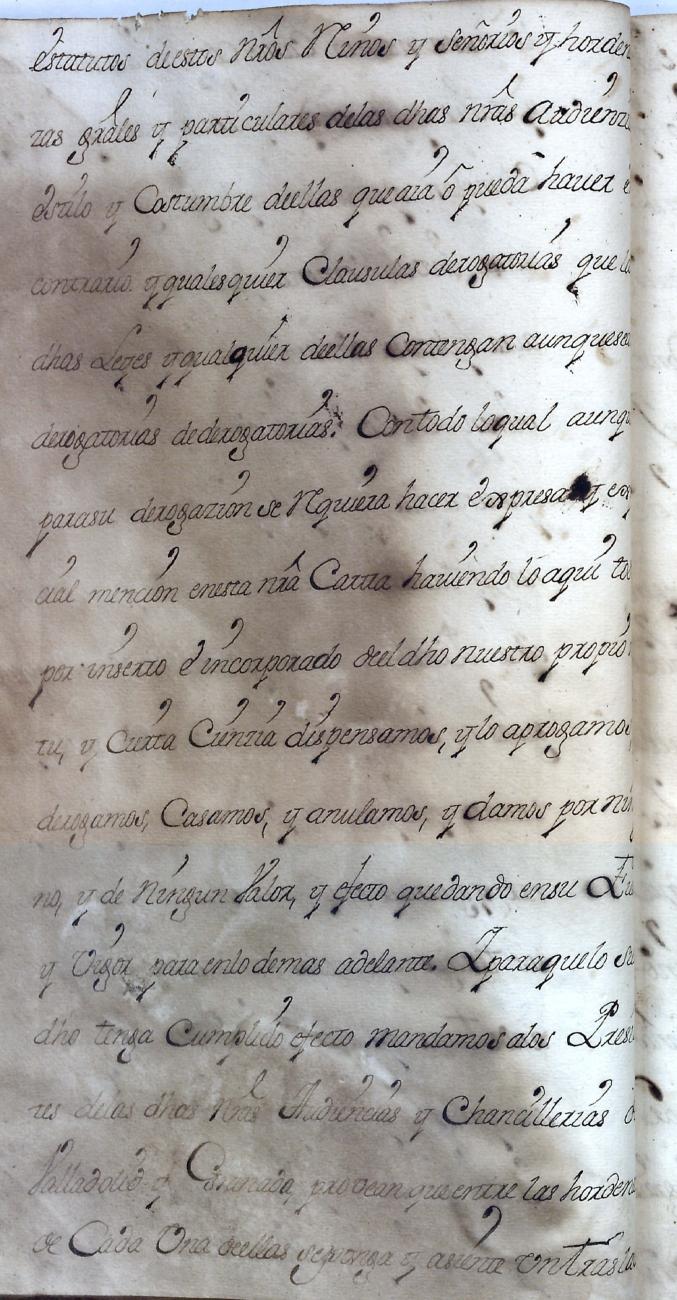 estatutos deestos nrôs Reinos y señorios y horden
zas grâles y particulares delas dhas nrâs Audienzi
estilo y Costumbre deellas queaia ô pueda haver e
contrario y qualesquier Clausulas derogatorias que la
dhas Leyes y qualquier deellas Contengan aunquesea
derogatorias dederogatorias. Contodo loqual aunq
parasu derogazion se Requiera hacer êxpresa y esp
cial mencion enesta nrâ Carta haviendo lo aqui to
por inserto ê incorporado deel dho nuestro propio
tu, y Cierta Cienzia dispensamos, y lo aprogamos,
derogamos, Casamos, y anulamos, y damos por nin
no, y de Ningun Valor, y efecto quedando ensu
y Vigor para enlo demas adelante. Y paraque lo su
dho tenga Cumplido efecto mandamos alos Presi
tes delas dhas nrâs Audiencias y Chancillerias d
Valladolid y Granada, provean que entre las horden
de Cada Una deellas se ponga y asiente Un Trasla